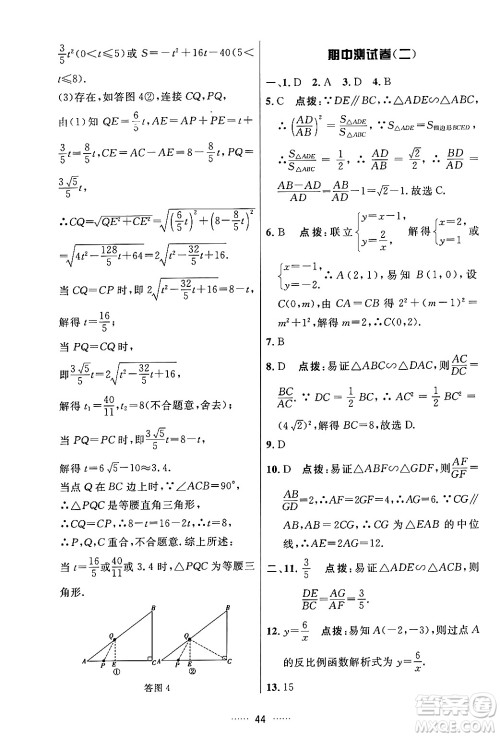 3/5t²(0<t≤5)或 S=-t²+16t-40(5<t
≤8).
(3)存在,如答图4②,连接CQ,PQ,
由(1)知QE=6/5t,CE=AC-AE=
AC-(AP+PE)=8-8/5t,PQ=
3√5/5t,
∴CQ=√(QE²+CE²)=√((6/5t)²+(8-8/5t)²)
=√(4t²-128/5t+64)=2√(t²-32/5t+16).
当CQ=CP时,即2√(t²-32/5t+16)=8-t,
解得t=16/5;
当PQ=CQ时,
即3√5/5t=2√(t²-32/5t+16),
解得t₁=40/11,t₂=8(不合题意,舍去);
当PQ=CP时,即3√5/5t=8-t,
解得t=6√5-10≈3.4.
当点Q在BC边上时,∵∠ACB=90°,
∴△PQC是等腰直角三角形,
∴CQ=CP,不合题意.综上所述:
当t=16/5或40/11或3.4时,△PQC为等腰三
角形.
B
Q
A
P
E
C
①
B
Q
A
P
E
C
②
答图4
期中测试卷(二)
一、1. D 2. A 3. D 4. B
5. C 点拨:∵DE∥BC,∴△ADE∽△ABC,
∴(AD/AB)²=S△ADE/S△ABC.∵S△ADE=S四边形BCED,
∴S△ADE/S△ABC=1/2,∴AD/AB=√2/2,∴BD/AD=
(AB-AD)/AD=(2-√2)/√2=√2-1.故选C.
6. B 点拨:联立{y=x-1, y=2/x, 解得{x=2, y=1或
{x=-1, y=-2.∴A(2,1),易知B(1,0),设
C(0,m),由CA=CB得2²+(m-1)²=
m²+1²,解得m=2.故选B.
7. B
8. D 点拨:易证△ABC∽△DAC,则AC/DC=
BC/AC.∵AC/BC=1/2,∴DC/AC=1/2.
9. D
10. D 点拨:易证△ABF∽△GDF,则AF/GF=
AB/GD=2.∵AB=CD,∴AB=CG.∵CG∥
AB,∴△ECG∽△EBA,CG为△EAB的中位
线,∴BE=2BC=8.
二、11. 3/5 点拨:易证△ADE∽△ABC,∴
DE/BC=AG/AF=3/5.
12. y=6/x 点拨:易知A(-2,-3),所以过点A
的反比例函数解析式为y=6/x.
13. 15
44